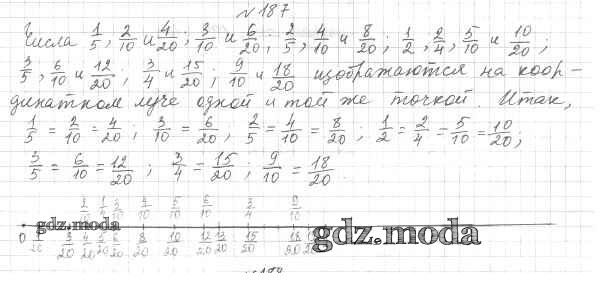 №187
Числа 1/5, 2/10 и 4/20; 3/10 и 6/20; 2/5, 4/10 и 8/20; 1/2, 2/4, 5/10 и 10/20;
3/5, 6/10 и 12/20; 3/4 и 15/20; 9/10 и 18/20 изображаются на коор-
динатном луче одной и той же точкой. Итак,
1/5 = 2/10 = 4/20; 3/10 = 6/20; 2/5 = 4/10 = 8/20; 1/2 = 2/4 = 5/10 = 10/20;
3/5 = 6/10 = 12/20; 3/4 = 15/20; 9/10 = 18/20.
2/10 1/5 3/10 4/10 5/10 6/10 3/4 9/10
gdz.moda
0 1/20 3/20 4/20 5/20 6/20 8/20 10/20 12/20 13/20 15/20 18/20
gdz.moda